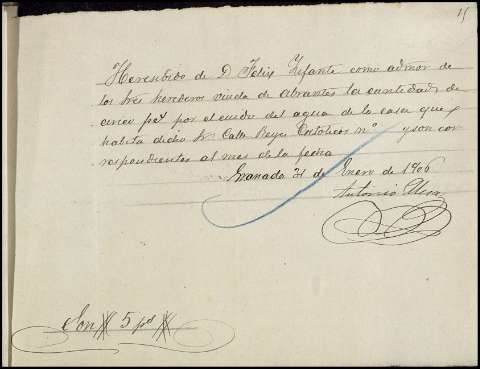 15
He recibido de D. Felix Infante como admor de
los tres herederos viuda de Abrantes la cantidad de
cinco pts por el cuido del agua de la casa que
habita dicho Sr Calle Reyes Catolicos nº y son cor
respondientes al mes de la fecha
Granada 31 de Enero de 1906
Antonio
Son 5 pts